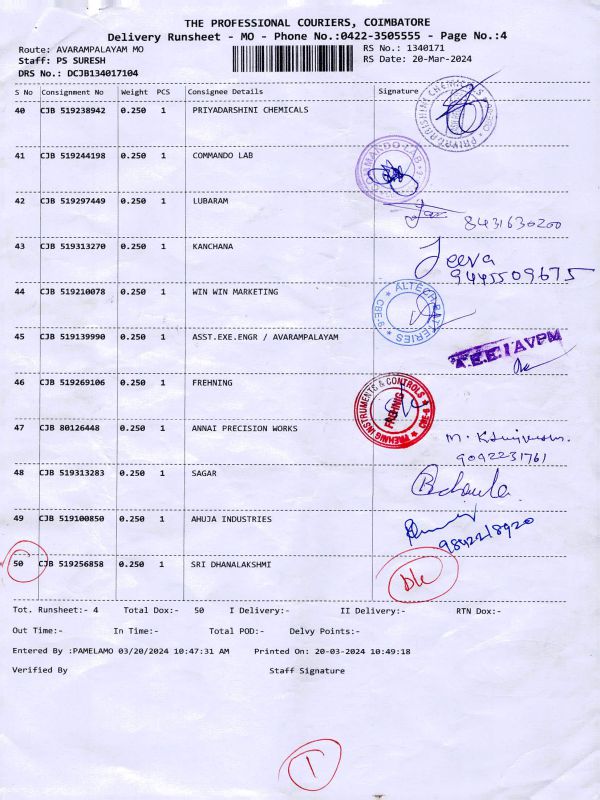 THE PROFESSIONAL COURIERS, COIMBATORE
Delivery Runsheet - MO - Phone No.:0422-3505555 - Page No.:4
Route: AVARAMPALAYAM MO RS No.: 1340171
Staff: PS SURESH RS Date: 20-Mar-2024
DRS No.: DCJB134017104
S No Consignment No Weight PCS Consignee Details Signature
40 CJB 519238942 0.250 1 PRIYADARSHINI CHEMICALS
41 CJB 519244198 0.250 1 COMMANDO LAB
COMMANDO LAB
42 CJB 519297449 0.250 1 LUBARAM
8431630200
43 CJB 519313270 0.250 1 KANCHANA Jeeva
9445509675
44 CJB 519210078 0.250 1 WIN WIN MARKETING
ALTECH BATTERIES CBE-9
45 CJB 519139990 0.250 1 ASST.EXE.ENGR / AVARAMPALAYAM
A.E.E / AVPM
46 CJB 519269106 0.250 1 FREHNING
FREHNIG INSTRUMENTS & CONTROLS CBE-6
FREHNIG
47 CJB 80126448 0.250 1 ANNAI PRECISION WORKS
9092231761
48 CJB 519313283 0.250 1 SAGAR
49 CJB 519100850 0.250 1 AHUJA INDUSTRIES
9842218920
50 CJB 519256858 0.250 1 SRI DHANALAKSHMI
Tot. Runsheet:- 4 Total Dox:- 50 I Delivery:- II Delivery:- RTN Dox:-
Out Time:- In Time:- Total POD:- Delvy Points:-
Entered By :PAMELAMO 03/20/2024 10:47:31 AM Printed On: 20-03-2024 10:49:18
Verified By Staff Signature
1